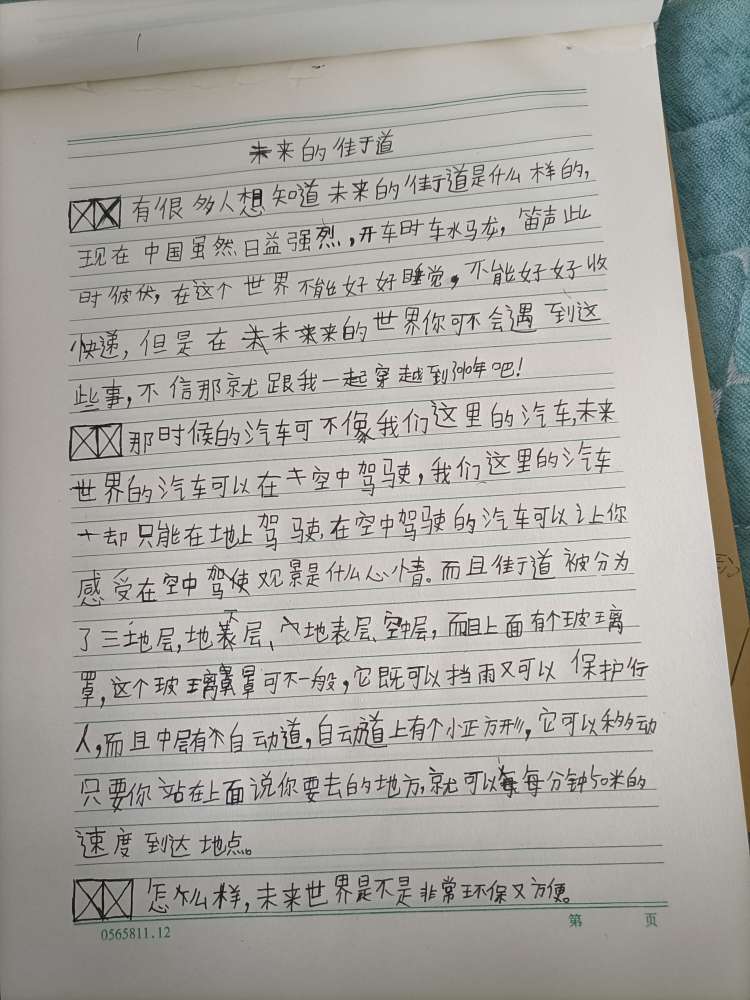 未来的街道
有很多人想知道未来的街道是什么样的,
现在中国虽然日益强烈,开车时车水马龙,笛声此
时彼伏,在这个世界不能好好睡觉,不能好好收
快递,但是在未来的世界你可不会遇到这
些事,不信那就跟我一起穿越到3910年吧!
那时候的汽车可不像我们这里的汽车,未来
世界的汽车可以在空中驾驶,我们这里的汽车
却只能在地上驾驶,在空中驾驶的汽车可以让你
感受在空中驾使观景是什么心情。而且街道被分为
了三地层,地下层、地表层、空中层,而且上面有个玻璃
罩,这个玻璃罩可不一般,它既可以挡雨又可以保护行
人,而且中层有个自动道,自动道上有个小正方形,它可以移动
只要你站在上面说你要去的地方,就可以每分钟50米的
速度到达地点。
怎么样,未来世界是不是非常环保又方便。
0565811.12 第 页